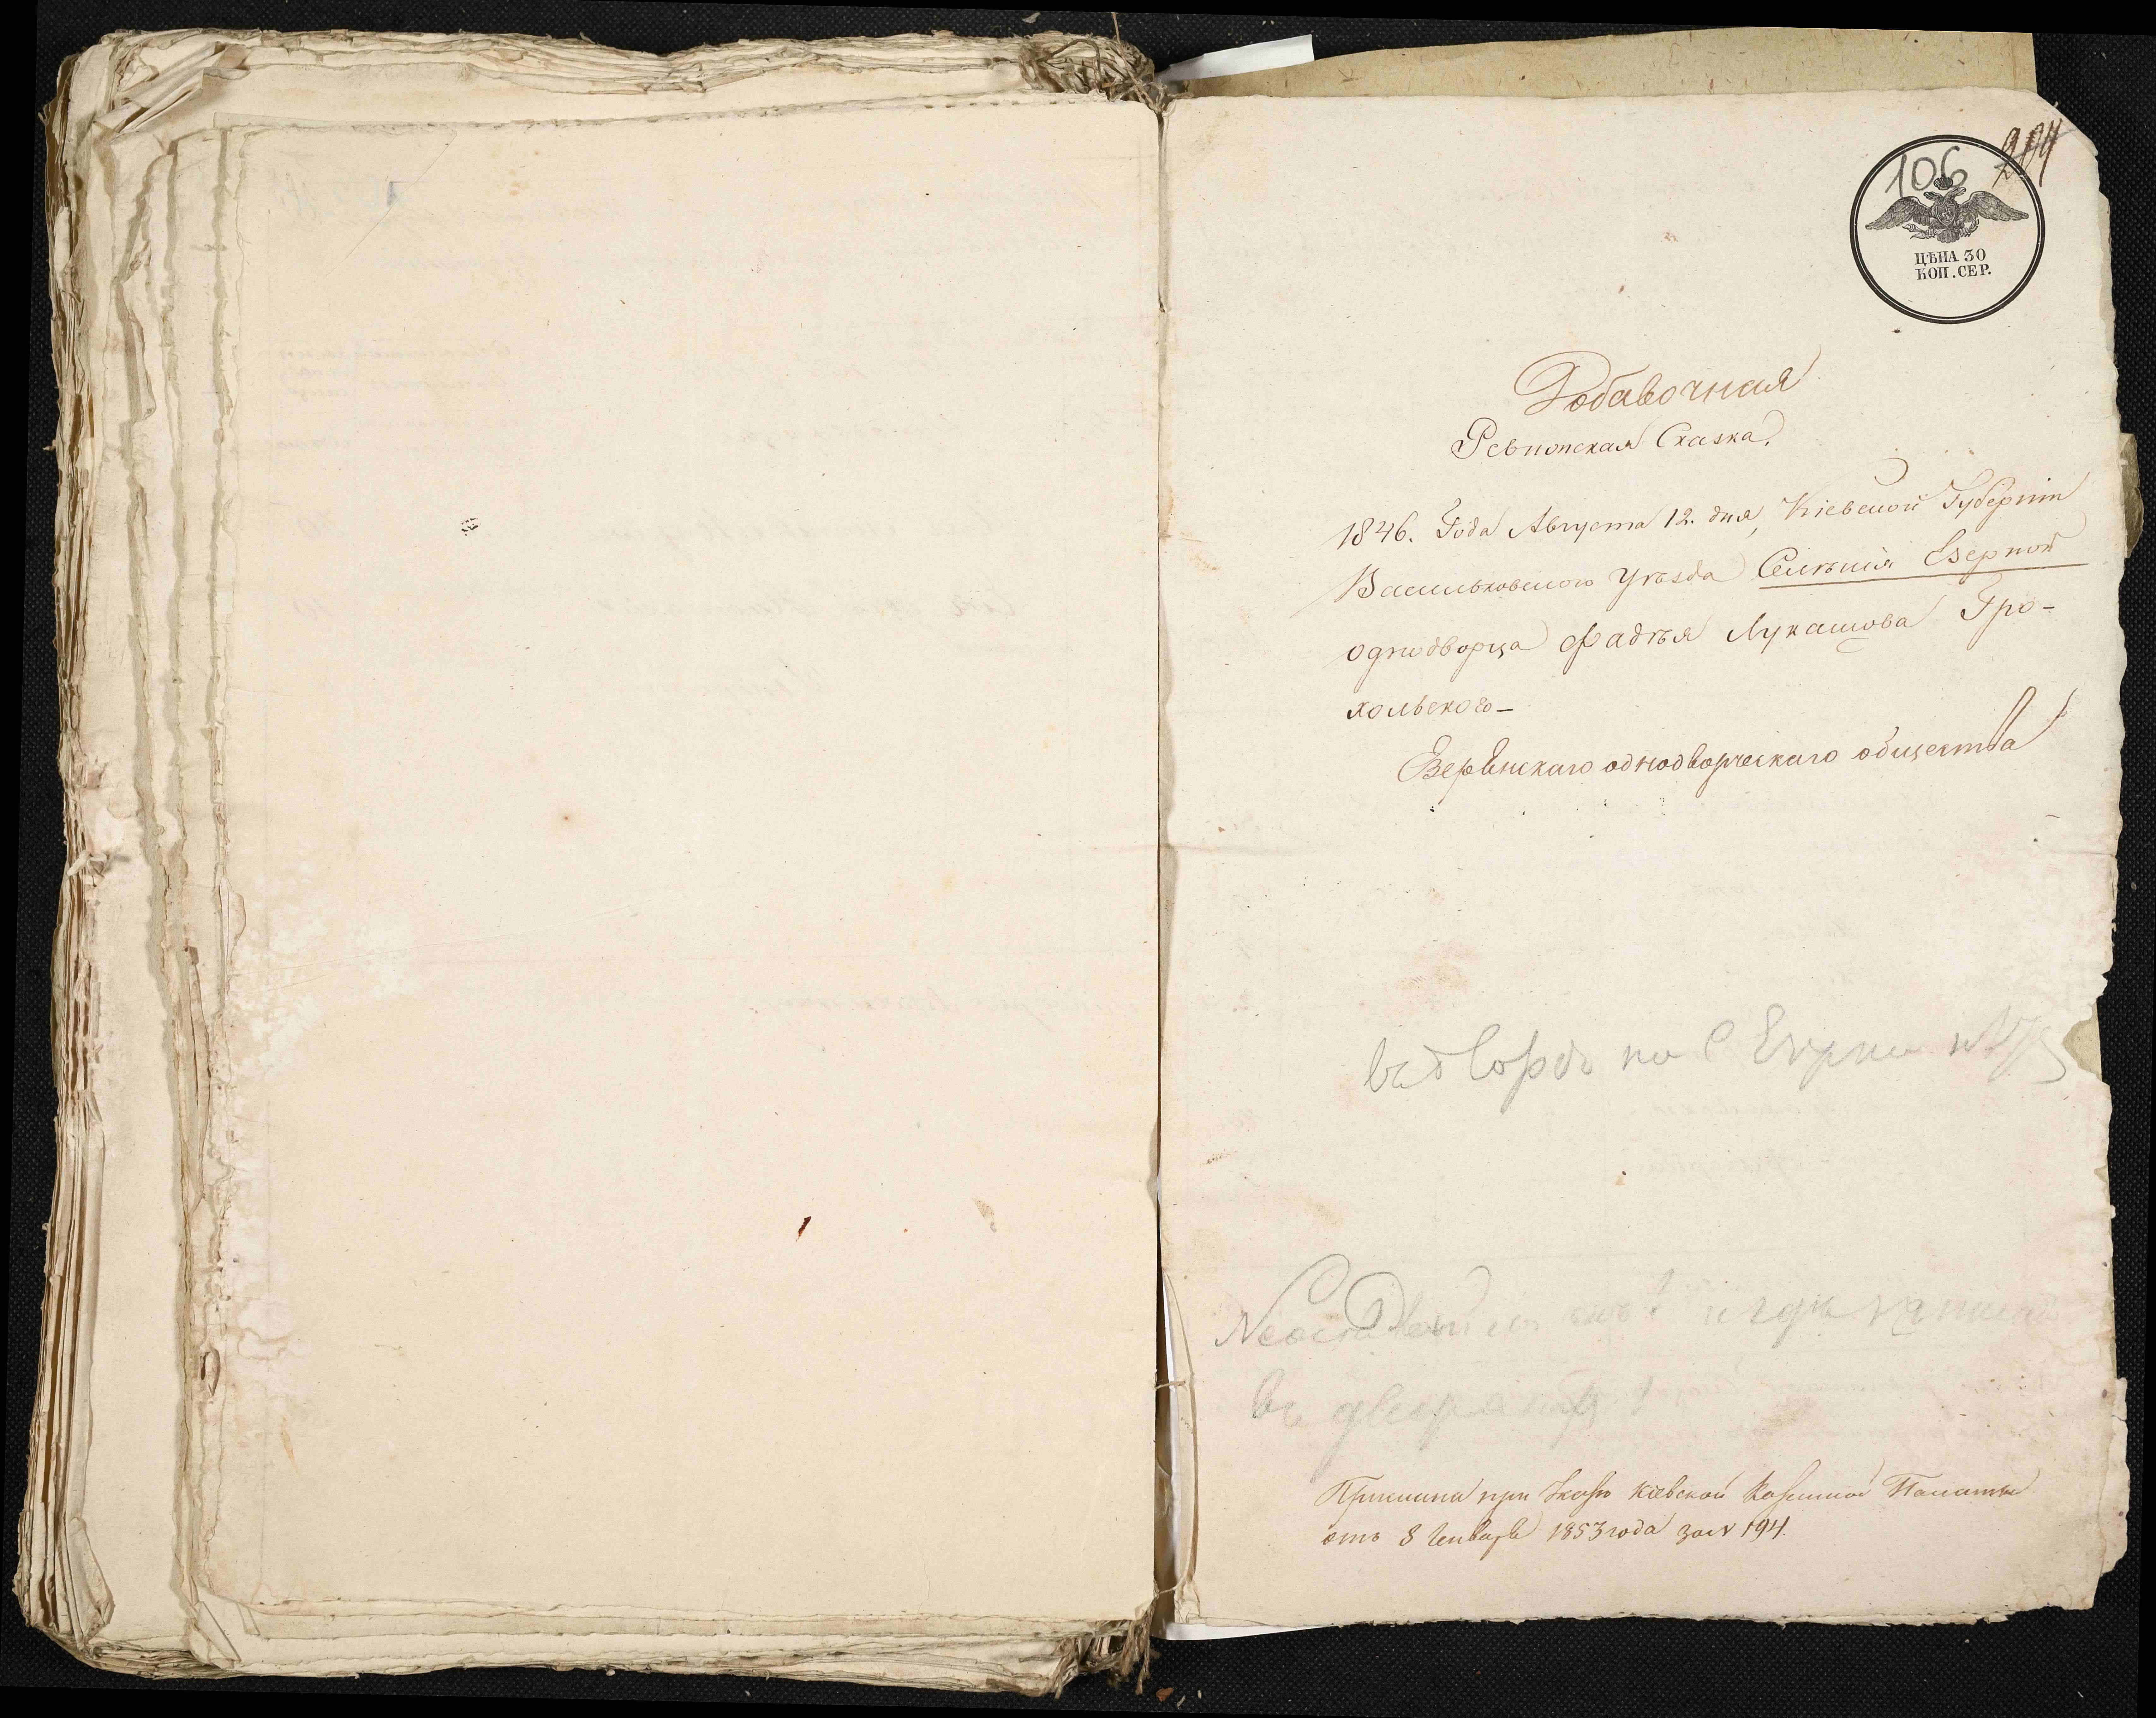 204
106
ЦѢНА 30
КОП. СЕР.
Добавочная
Ревизская Сказка.
1846. Года Августа 12. дня, Кіевской Губерніи
Васильковского Уѣзда Селѣнія Езерной
однодворца Фадѣя Лукашова Гро-
хольского–
Езерянскаго однодворческаго общества
въ дворѣ на С Езерна
и гдѣ
въ
Прислана при Указѣ Кіевской Казенной Палаты
отъ 8 Генваря 1853 года за № 194.